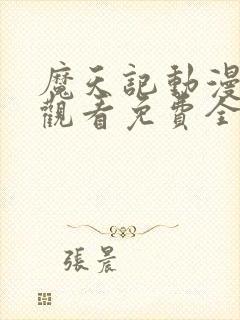 魔天記動漫
觀看免費全
張晨